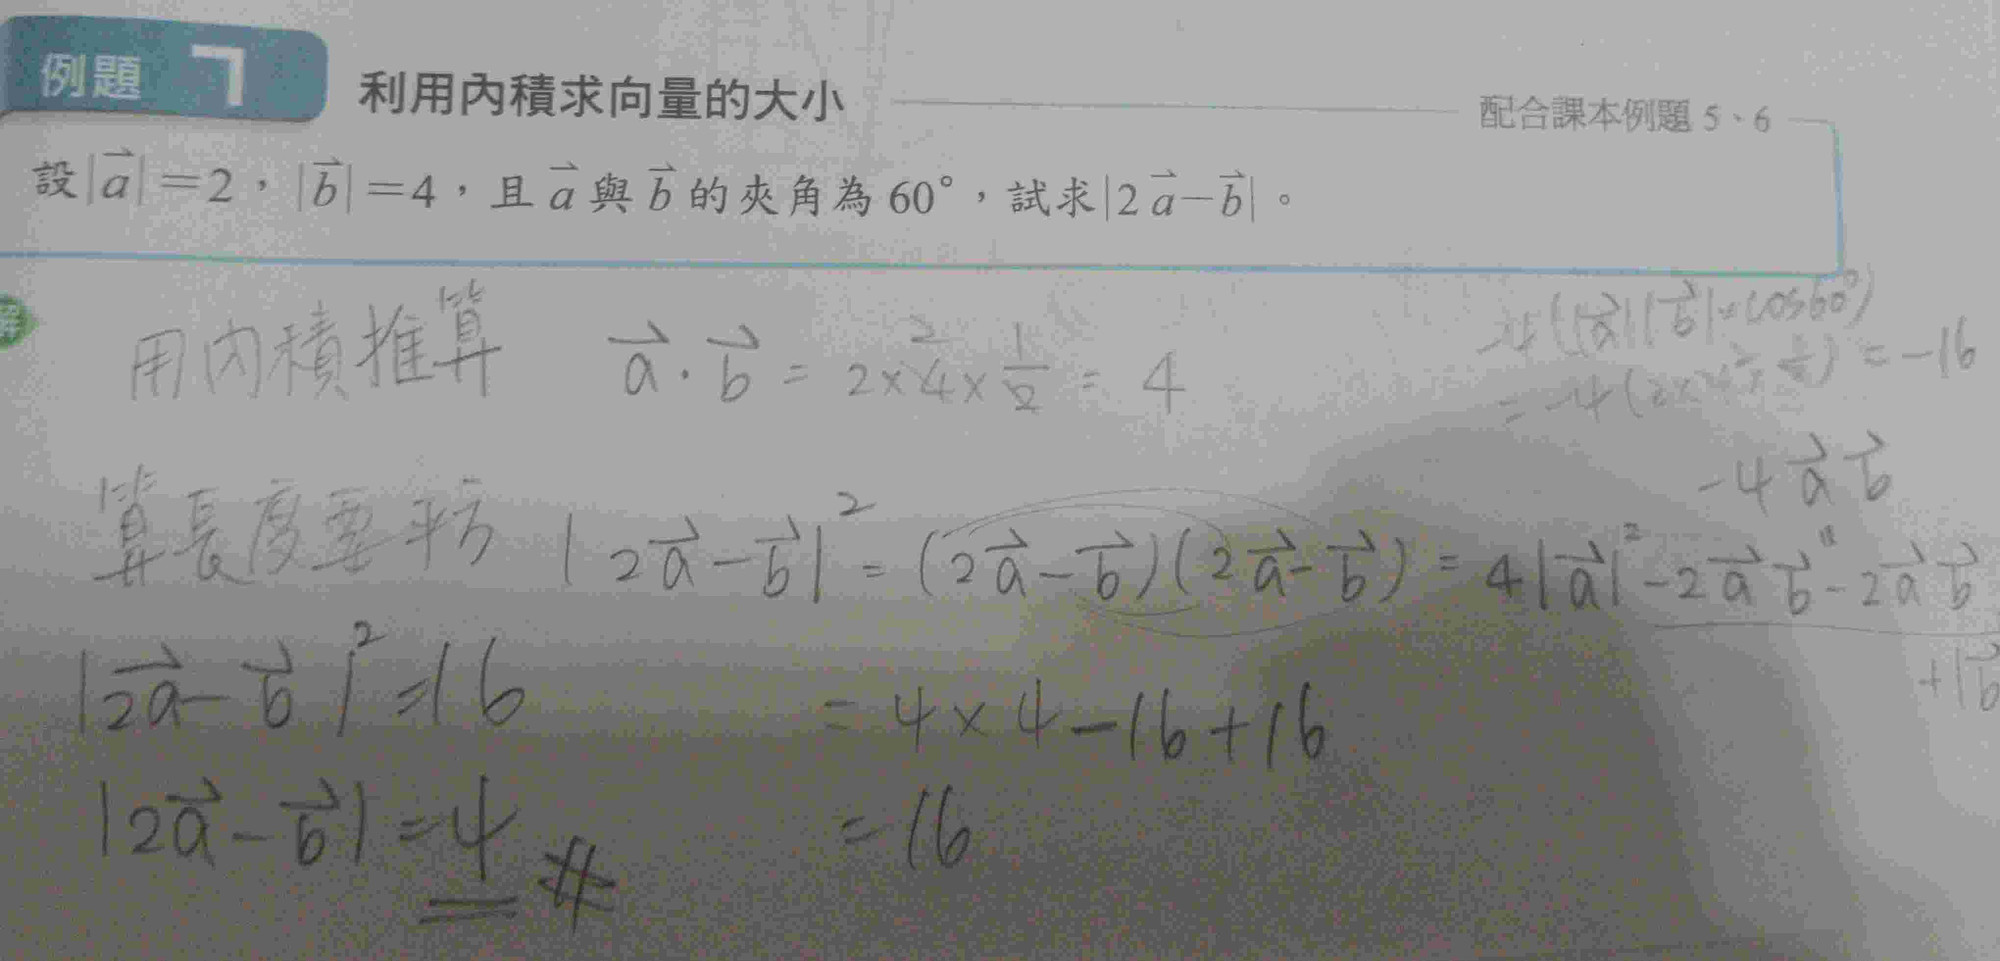 例題 7 利用內積求向量的大小 配合課本例題 5、6
設|a⃗|=2，|b⃗|=4，且 a⃗ 與 b⃗ 的夾角為 60°，試求|2a⃗-b⃗|。
解
用內積推算 a⃗·b⃗ = 2×4×1/2 = 4
-4(|a⃗||b⃗|×cos60°)
= -4(2×4×1/2) = -16
-4a⃗b⃗
算長度要平方 |2a⃗-b⃗|² = (2a⃗-b⃗)(2a⃗-b⃗) = 4|a⃗|²-2a⃗b⃗-2a⃗b⃗
+|b⃗
|2a⃗-b⃗|²=16 = 4×4-16+16
|2a⃗-b⃗|=4 # = 16